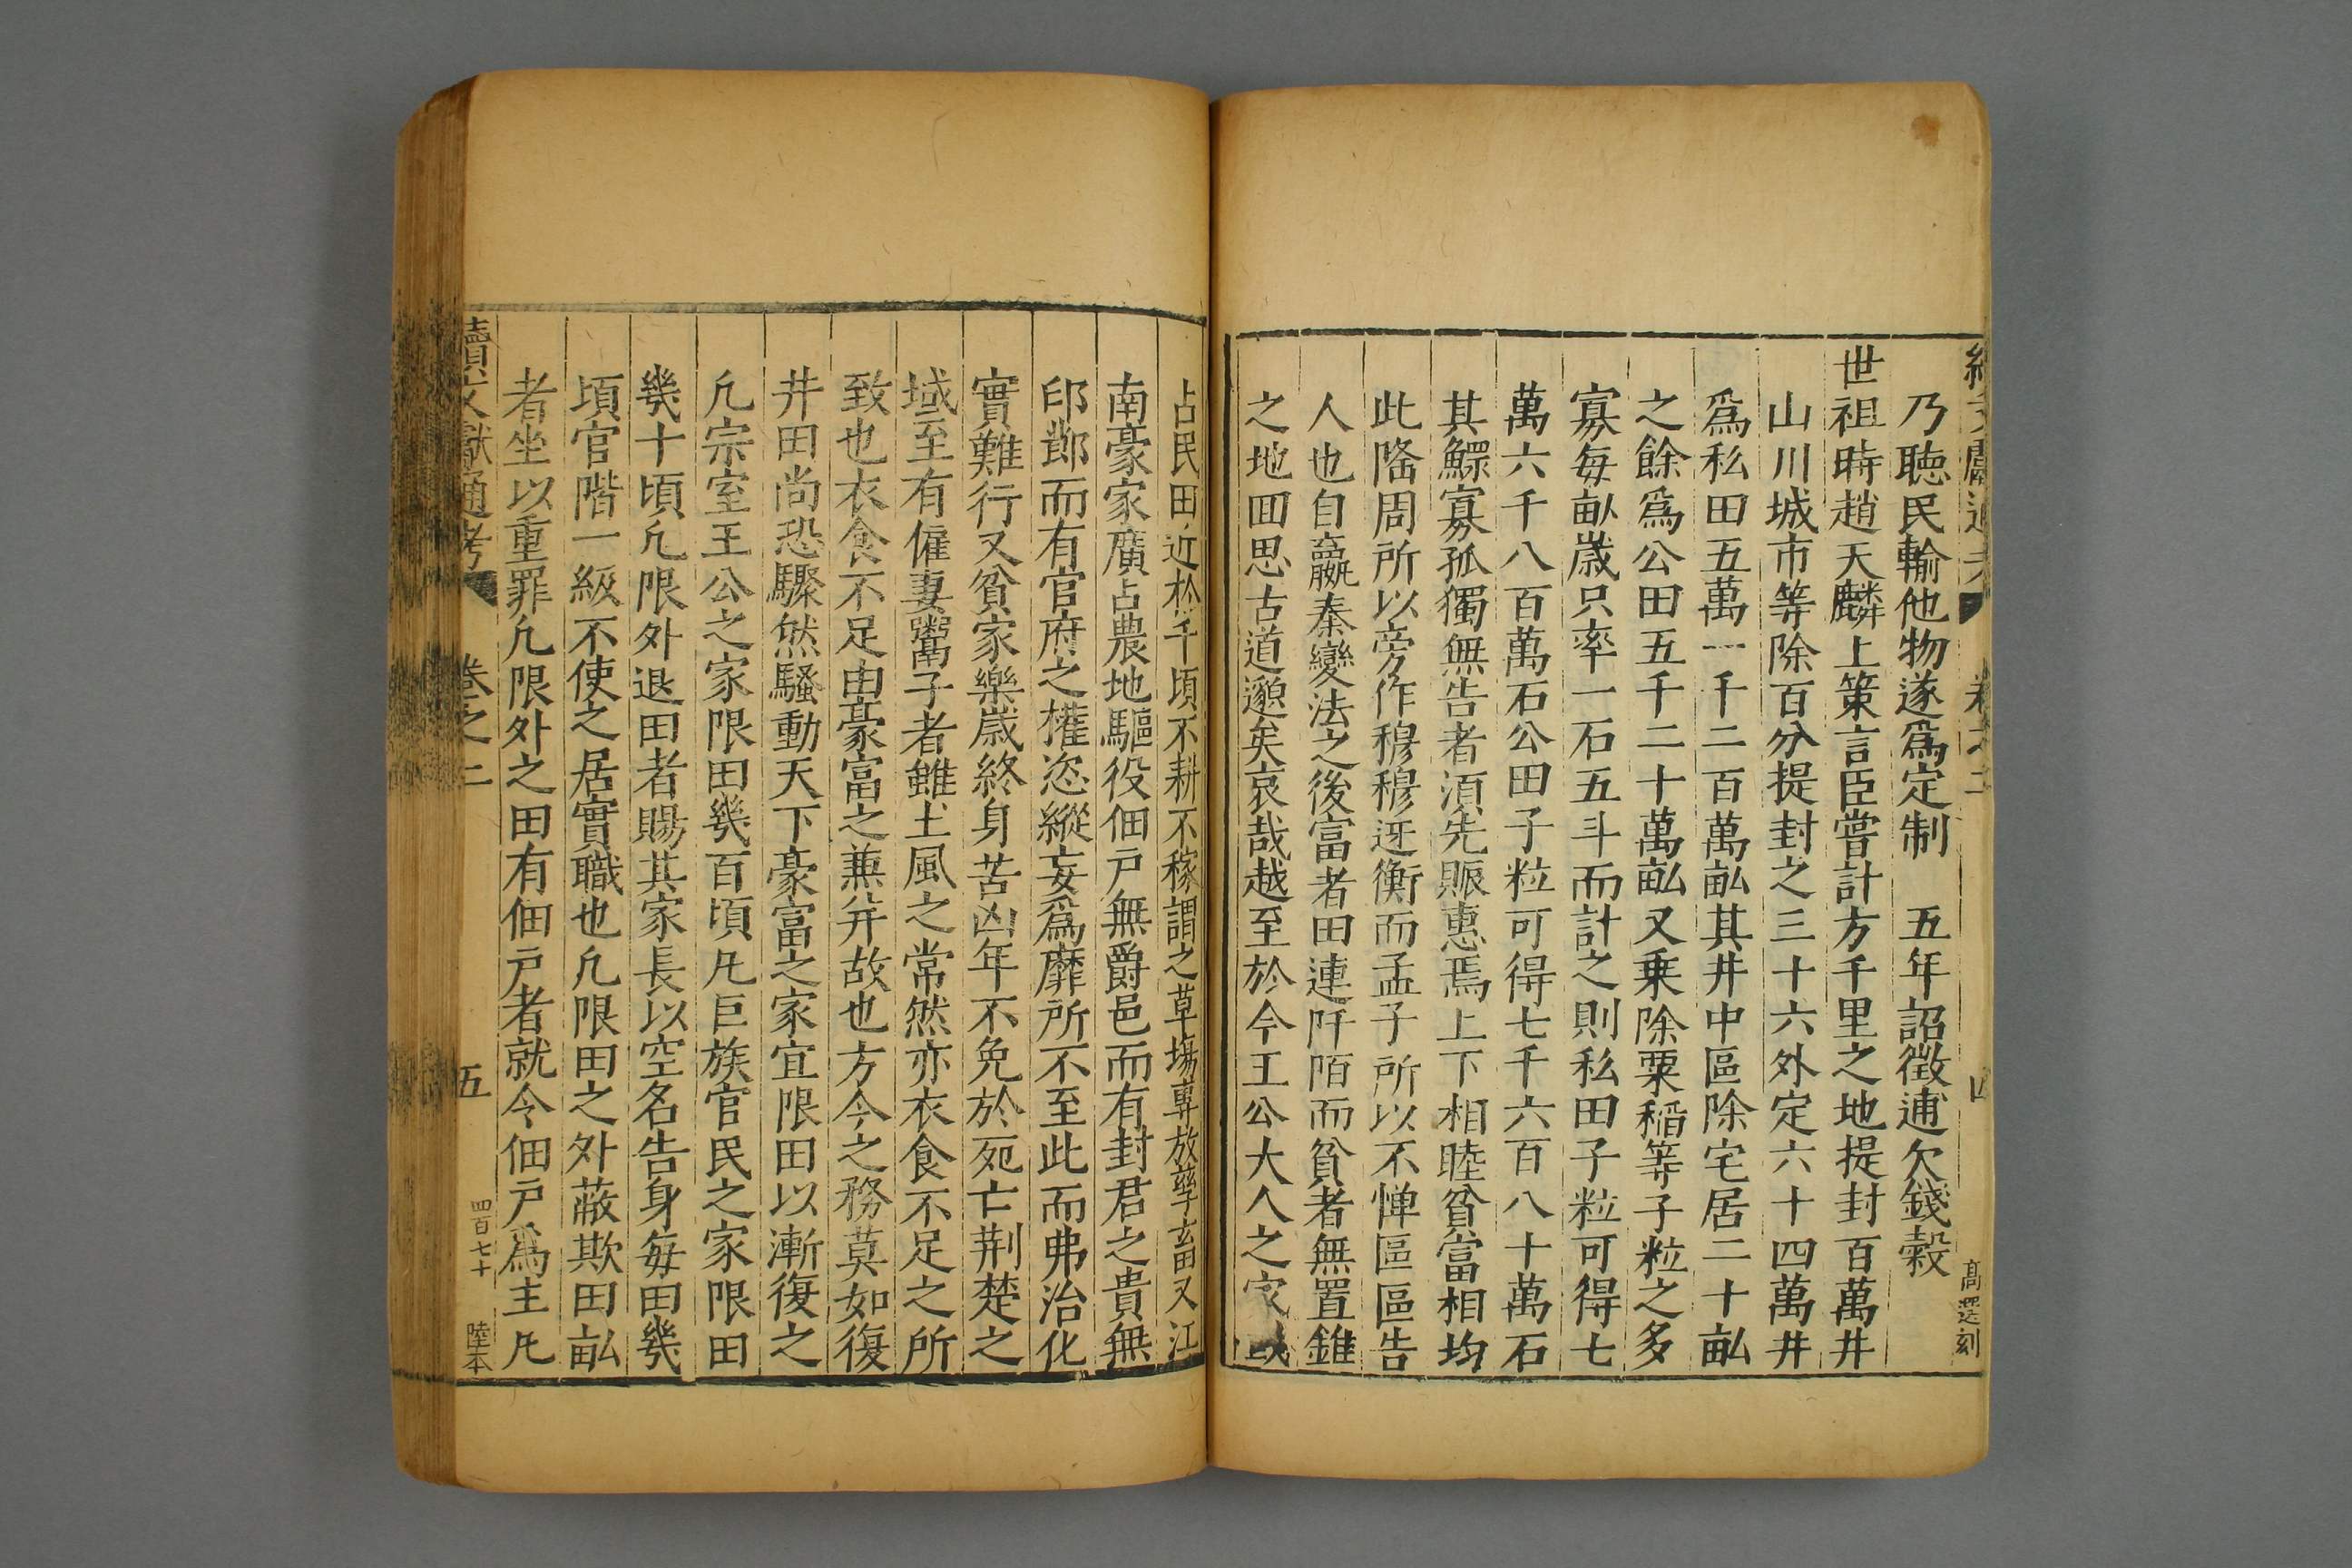 續文獻通考 卷之二 四 高選刻
乃聴民輸他物遂爲定制 五年詔徵逋欠錢榖
世祖時趙天麟上策言臣嘗計方千里之地提封百萬井
山川城市等除百分提封之三十六外定六十四萬井
爲私田五萬一千二百萬畆其井中區除宅居二十畆
之餘爲公田五千二十萬畆又乗除粟稲等子粒之多
寡每畆歳只率一石五斗而計之則私田子粒可得七
萬六千八百萬石公田子粒可得七千六百八十萬石
其鰥寡孤獨無告者須先賑惠焉上下相睦貧富相均
此隆周所以旁作穆穆迓衡而孟子所以不憚區區告
人也自嬴秦變法之後富者田連阡陌而貧者無置錐
之地囬思古道邈矣哀哉越至於今王公大人之家或
占民田近於千頃不耕不稼謂之草塲專放孳畜又江
南豪家廣占農地驅役佃戸無爵邑而有封君之貴無
印郎而有官府之權恣縱妄爲靡所不至此而弗治化
實難行又貧家樂歳終身苦凶年不免於死亡荆楚之
域至有僱妻鬻子者雖土風之常然亦衣食不足之所
致也衣食不足由豪富之兼并故也方今之務莫如復
井田尚恐驟然騷動天下豪富之家宜限田以漸復之
凢宗室王公之家限田幾百頃凢巨族官民之家限田
幾十頃凢限外退田者賜其家長以空名告身每田幾
頃官階一級不使之居實職也凢限田之外蔽欺田畆
者坐以重罪凢限外之田有佃戸者就令佃戸爲主凢
續文獻通考 卷之二 五 四百七十 陸本